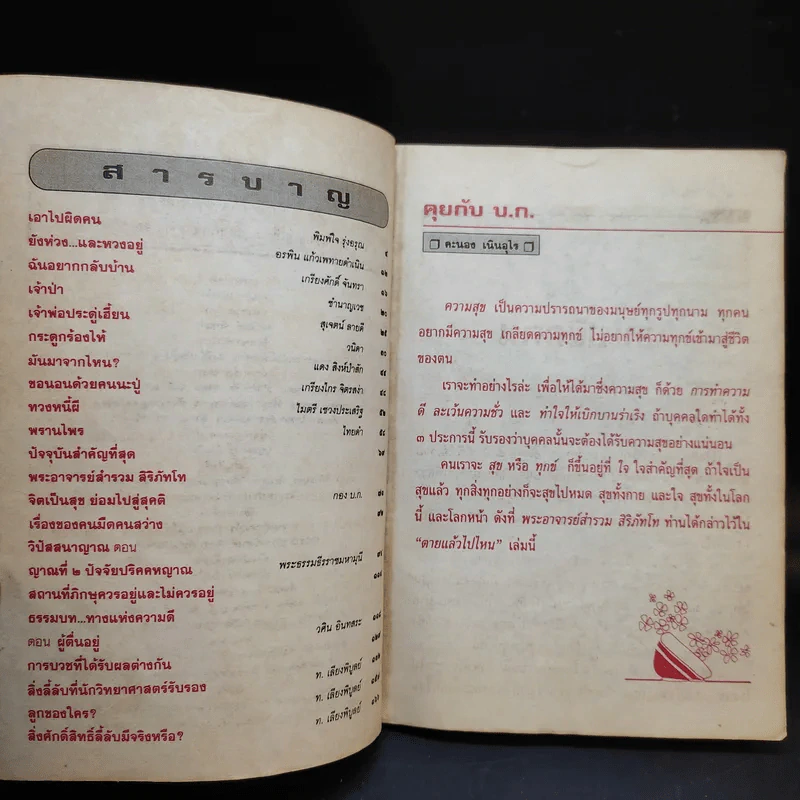 สารบาญ
เอาไปผิดคน
พิมพ์ใจ รุ่งอรุณ ๔
ยังห่วง...และหวงอยู่
อรพิน แก้วเพทายดำเนิน ๑๒
ฉันอยากกลับบ้าน
เกรียงศักดิ์ จันทรา ๑๖
เจ้าป่า
ชำนาญเวช ๒๐
เจ้าพ่อประตูเฮี้ยน
สุเจตน์ ลายดี ๒๕
กระดูกร้องไห้
วนิดา ๓๐
มันมาจากไหน?
แดง สิงห์ป่าสัก
ขอนอนด้วยคนนะปู่
เกรียงไกร จิตรสง่า ๔๔
ทวงหนี้ผี
ไมตรี เชวงประเสริฐ
พรานไพร
ไทยดำ ๕๘
ปัจจุบันสำคัญที่สุด
๖๓
พระอาจารย์สำรวม สิริภัทโท
จิตเป็นสุข ย่อมไปสู่สุคติ
กอง บ.ก.
เรื่องของคนมืดคนสว่าง
วิปัสสนาญาณ ตอน
ญาณที่ ๒ ปัจจัยปริคคหญาณ
พระธรรมธีรราชมหามุนี
สถานที่ภิกษุควรอยู่และไม่ควรอยู่
ธรรมบท...ทางแห่งความดี
ตอน ผู้ตื่นอยู่
วศิน อินทสระ
การบวชที่ได้รับผลต่างกัน
สิ่งลี้ลับที่นักวิทยาศาสตร์รับรอง
ท. เลียงพิบูลย์
ลูกของใคร?
ท. เลียงพิบูลย์
สิ่งศักดิ์สิทธิ์ลี้ลับมีจริงหรือ?
ท. เลียงพิบูลย์
คุยกับ บ.ก.
คะนอง เนินอุไร
ความสุข เป็นความปรารถนาของมนุษย์ทุกรูปทุกนาม ทุกคน
อยากมีความสุข เกลียดความทุกข์ ไม่อยากให้ความทุกข์เข้ามาสู่ชีวิต
ของตน
เราจะทำอย่างไรล่ะ เพื่อให้ได้มาซึ่งความสุข ก็ด้วย การทำความ
ดี ละเว้นความชั่ว และ ทำใจให้เบิกบานร่าเริง ถ้าบุคคลใดทำได้ทั้ง
๓ ประการนี้ รับรองว่าบุคคลนั้นจะต้องได้รับความสุขอย่างแน่นอน
คนเราจะ สุข หรือ ทุกข์ ก็ขึ้นอยู่ที่ ใจ ใจสำคัญที่สุด ถ้าใจเป็น
สุขแล้ว ทุกสิ่งทุกอย่างก็จะสุขไปหมด สุขทั้งกาย และใจ สุขทั้งในโลก
นี้ และโลกหน้า ดังที่ พระอาจารย์สำรวม สิริภัทโท ท่านได้กล่าวไว้ใน
“ตายแล้วไปไหน” เล่มนี้